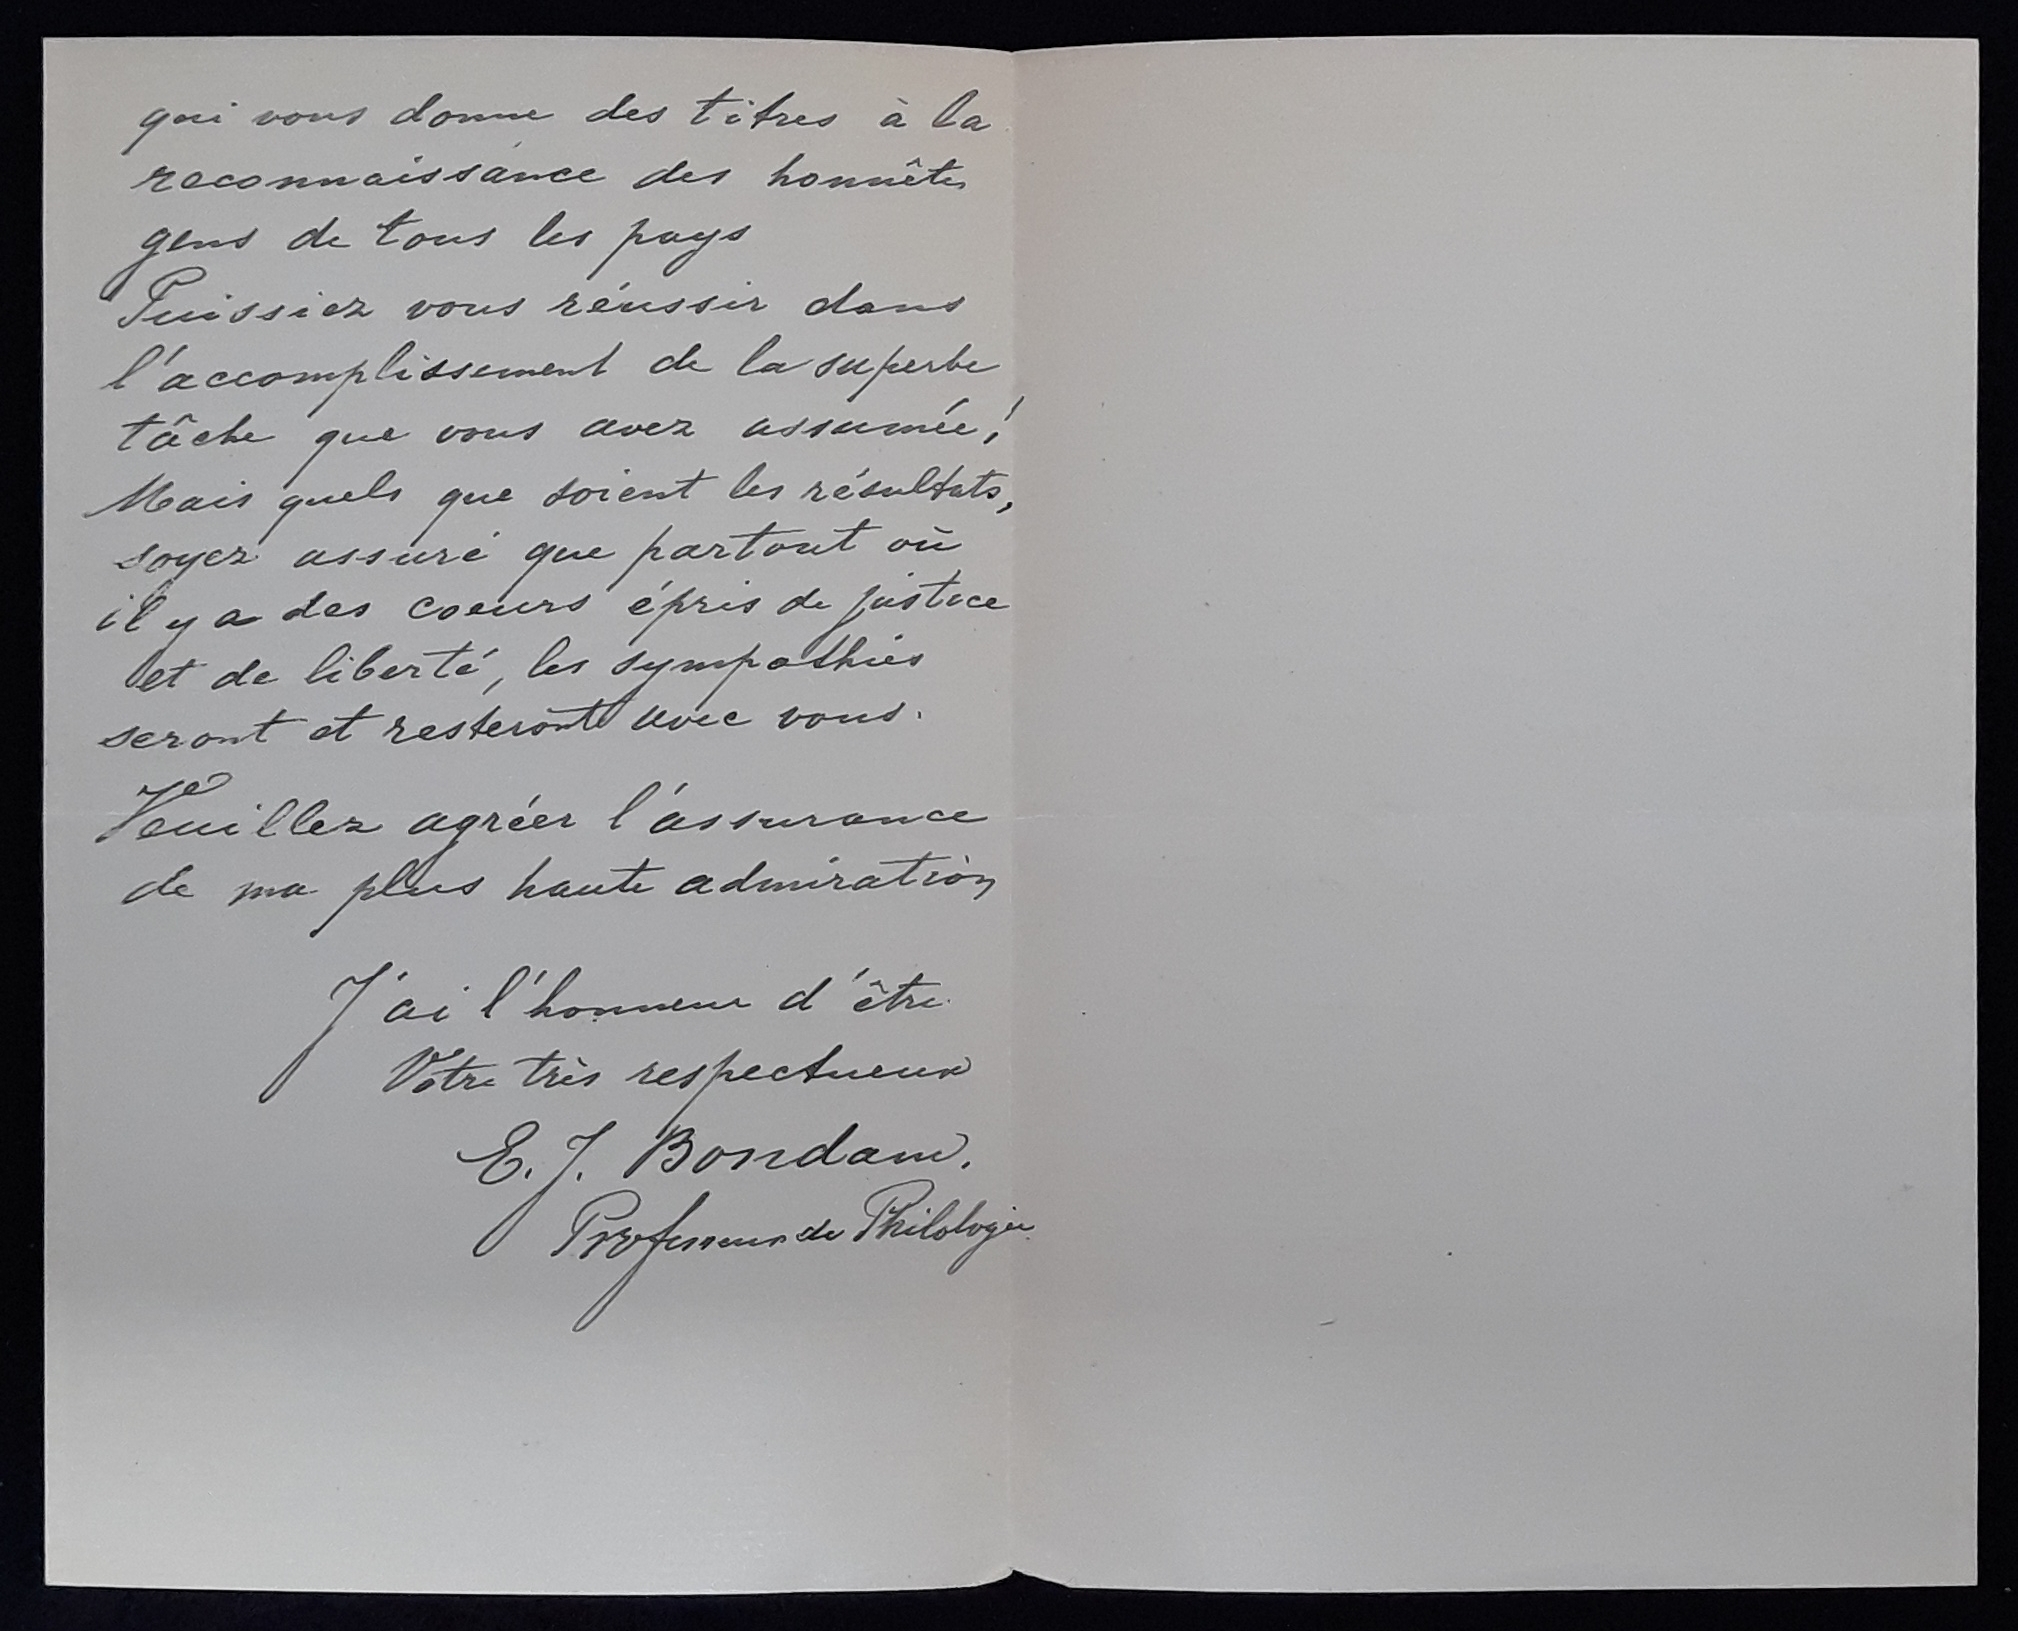 qui vous donne des titres à la
reconnaissance des honnêtes
gens de tous les pays
Puissiez vous réussir dans
l'accomplissement de la superbe
tâche que vous avez assumée!
Mais quels que soient les résultats,
soyez assuré que partout où
il y a des coeurs épris de justice
et de liberté, les sympathies
seront et resteront avec vous.
Veuillez agréer l'assurance
de ma plus haute admiration
J'ai l'honneur d'être
Votre très respectueux
E. J. Bondam.
Professeur de Philologie